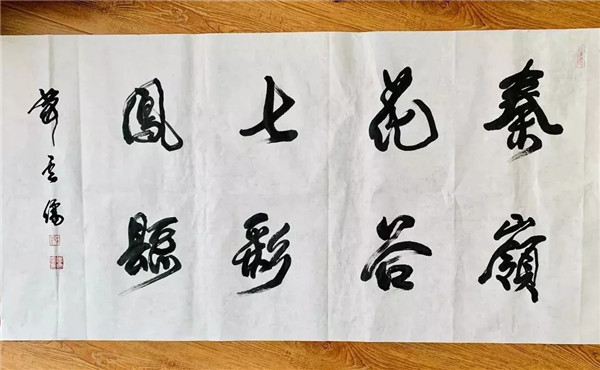 秦嶺
花谷
七彩
鳳縣